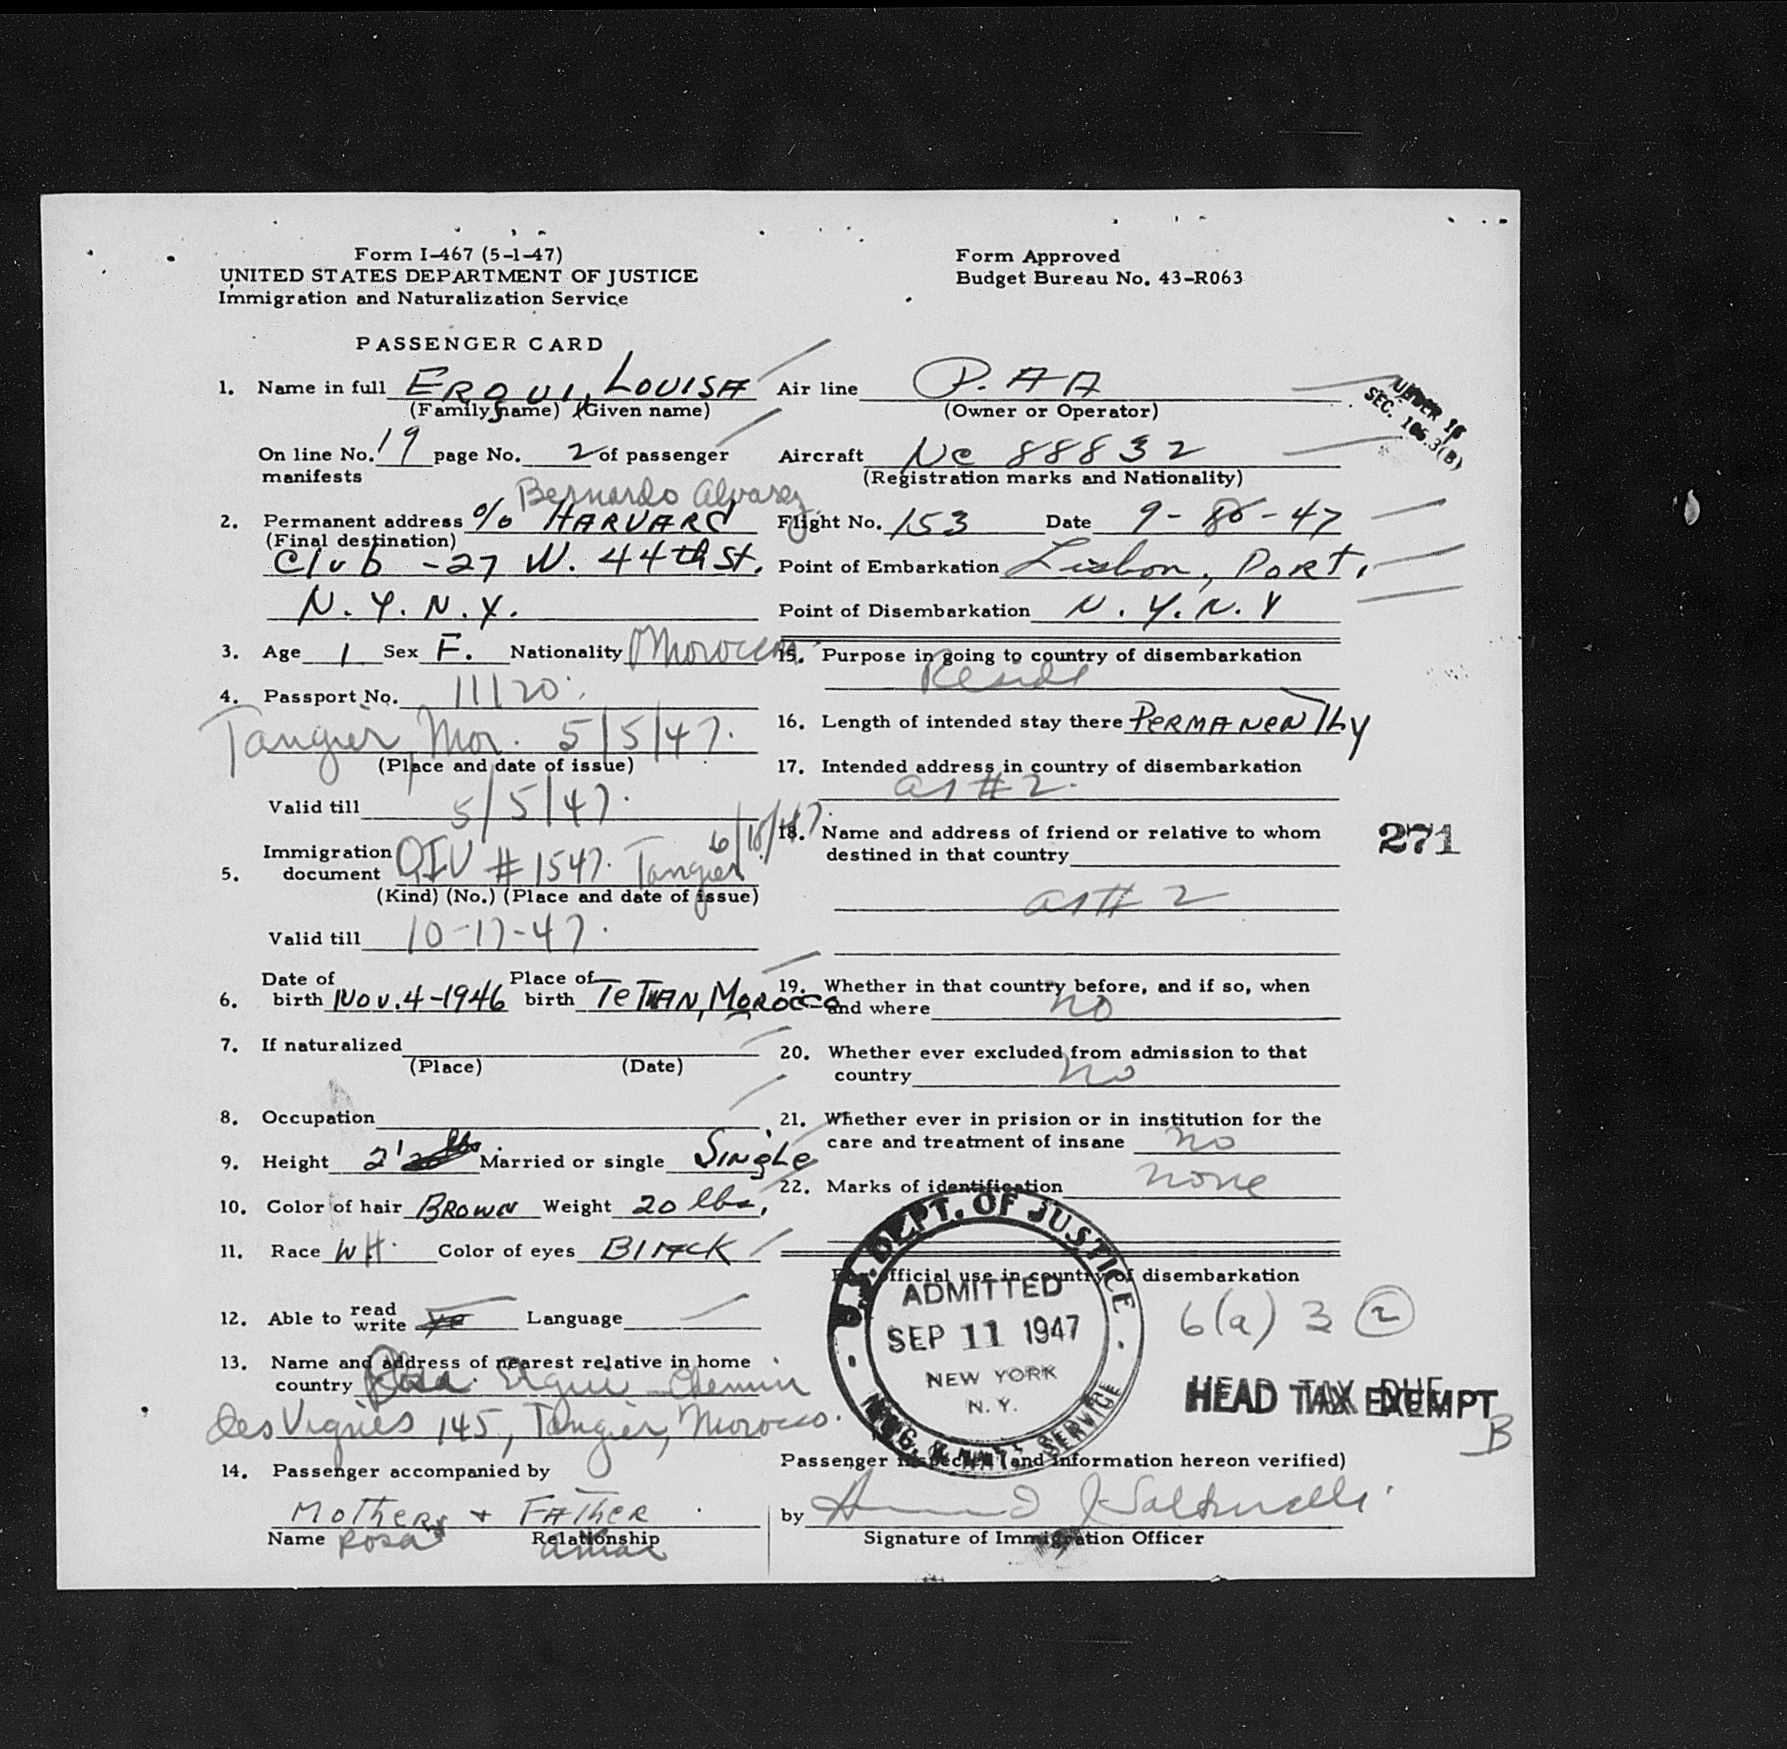 Form I-467 (5-1-47)
UNITED STATES DEPARTMENT OF JUSTICE
Immigration and Naturalization Service
Form Approved
Budget Bureau No. 43-R063
PASSENGER CARD
1. Name in full ERQUI, LOUISA
(Family name) (Given name)
On line No. 19 page No. 2 of passenger
manifests
Bernardo Alvarez
2. Permanent address % HARVARD
(Final destination)
Club - 27 W. 44th St.
N.Y. N.Y.
3. Age 1 Sex F. Nationality Morocco
4. Passport No. 11120
Tangier, Mor. 5/5/47.
(Place and date of issue)
Valid till 5/5/47.
6/18/47.
5. Immigration document QIV # 1547. Tangier
(Kind) (No.) (Place and date of issue)
Valid till 10-17-47.
6. Date of birth Nov. 4-1946 Place of birth TETUAN, MOROCCO
7. If naturalized
(Place) (Date)
8. Occupation
9. Height 2' Married or single SINGLE
10. Color of hair BROWN Weight 20 lbs.
11. Race WH. Color of eyes BLACK
12. Able to read write Language
13. Name and address of nearest relative in home
country Erqui Chemin
des Vignes 145, Tangier, Morocco.
14. Passenger accompanied by
MOTHER + FATHER
Name Rosa Relationship
Air line P.AA
(Owner or Operator)
UNDER 16
SEC. 106.3(B)
Aircraft NC 88832
(Registration marks and Nationality)
Flight No. 153 Date 9-10-47
Point of Embarkation Lisbon, PORT.
Point of Disembarkation N.Y. N.Y
15. Purpose in going to country of disembarkation
Reside
16. Length of intended stay there PERMANENTLY
17. Intended address in country of disembarkation
as # 2.
18. Name and address of friend or relative to whom
destined in that country
as # 2
271
19. Whether in that country before, and if so, when
and where no
20. Whether ever excluded from admission to that
country no
21. Whether ever in prision or in institution for the
care and treatment of insane no
22. Marks of identification none
For official use in country of disembarkation
U.S. DEPT. OF JUSTICE
ADMITTED
SEP 11 1947
NEW YORK
N.Y.
IMMIG. & NATZ. SERVICE
6(a) 3 2
HEAD TAX EXEMPT
B
Passenger inspected (and information hereon verified)
by
Signature of Immigration Officer